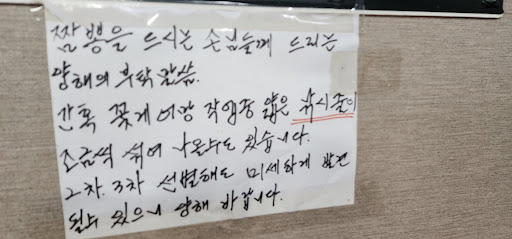 짬뽕을 드시는 손님들께 드리는
양해의 부탁 말씀.
간혹 꽃게 어망 작업중 얇은 낚시줄이
조금씩 섞여 나올수도 있습니다.
2차. 3차 선별해도 미세하게 발견
될수 있으니 양해 바랍니다.